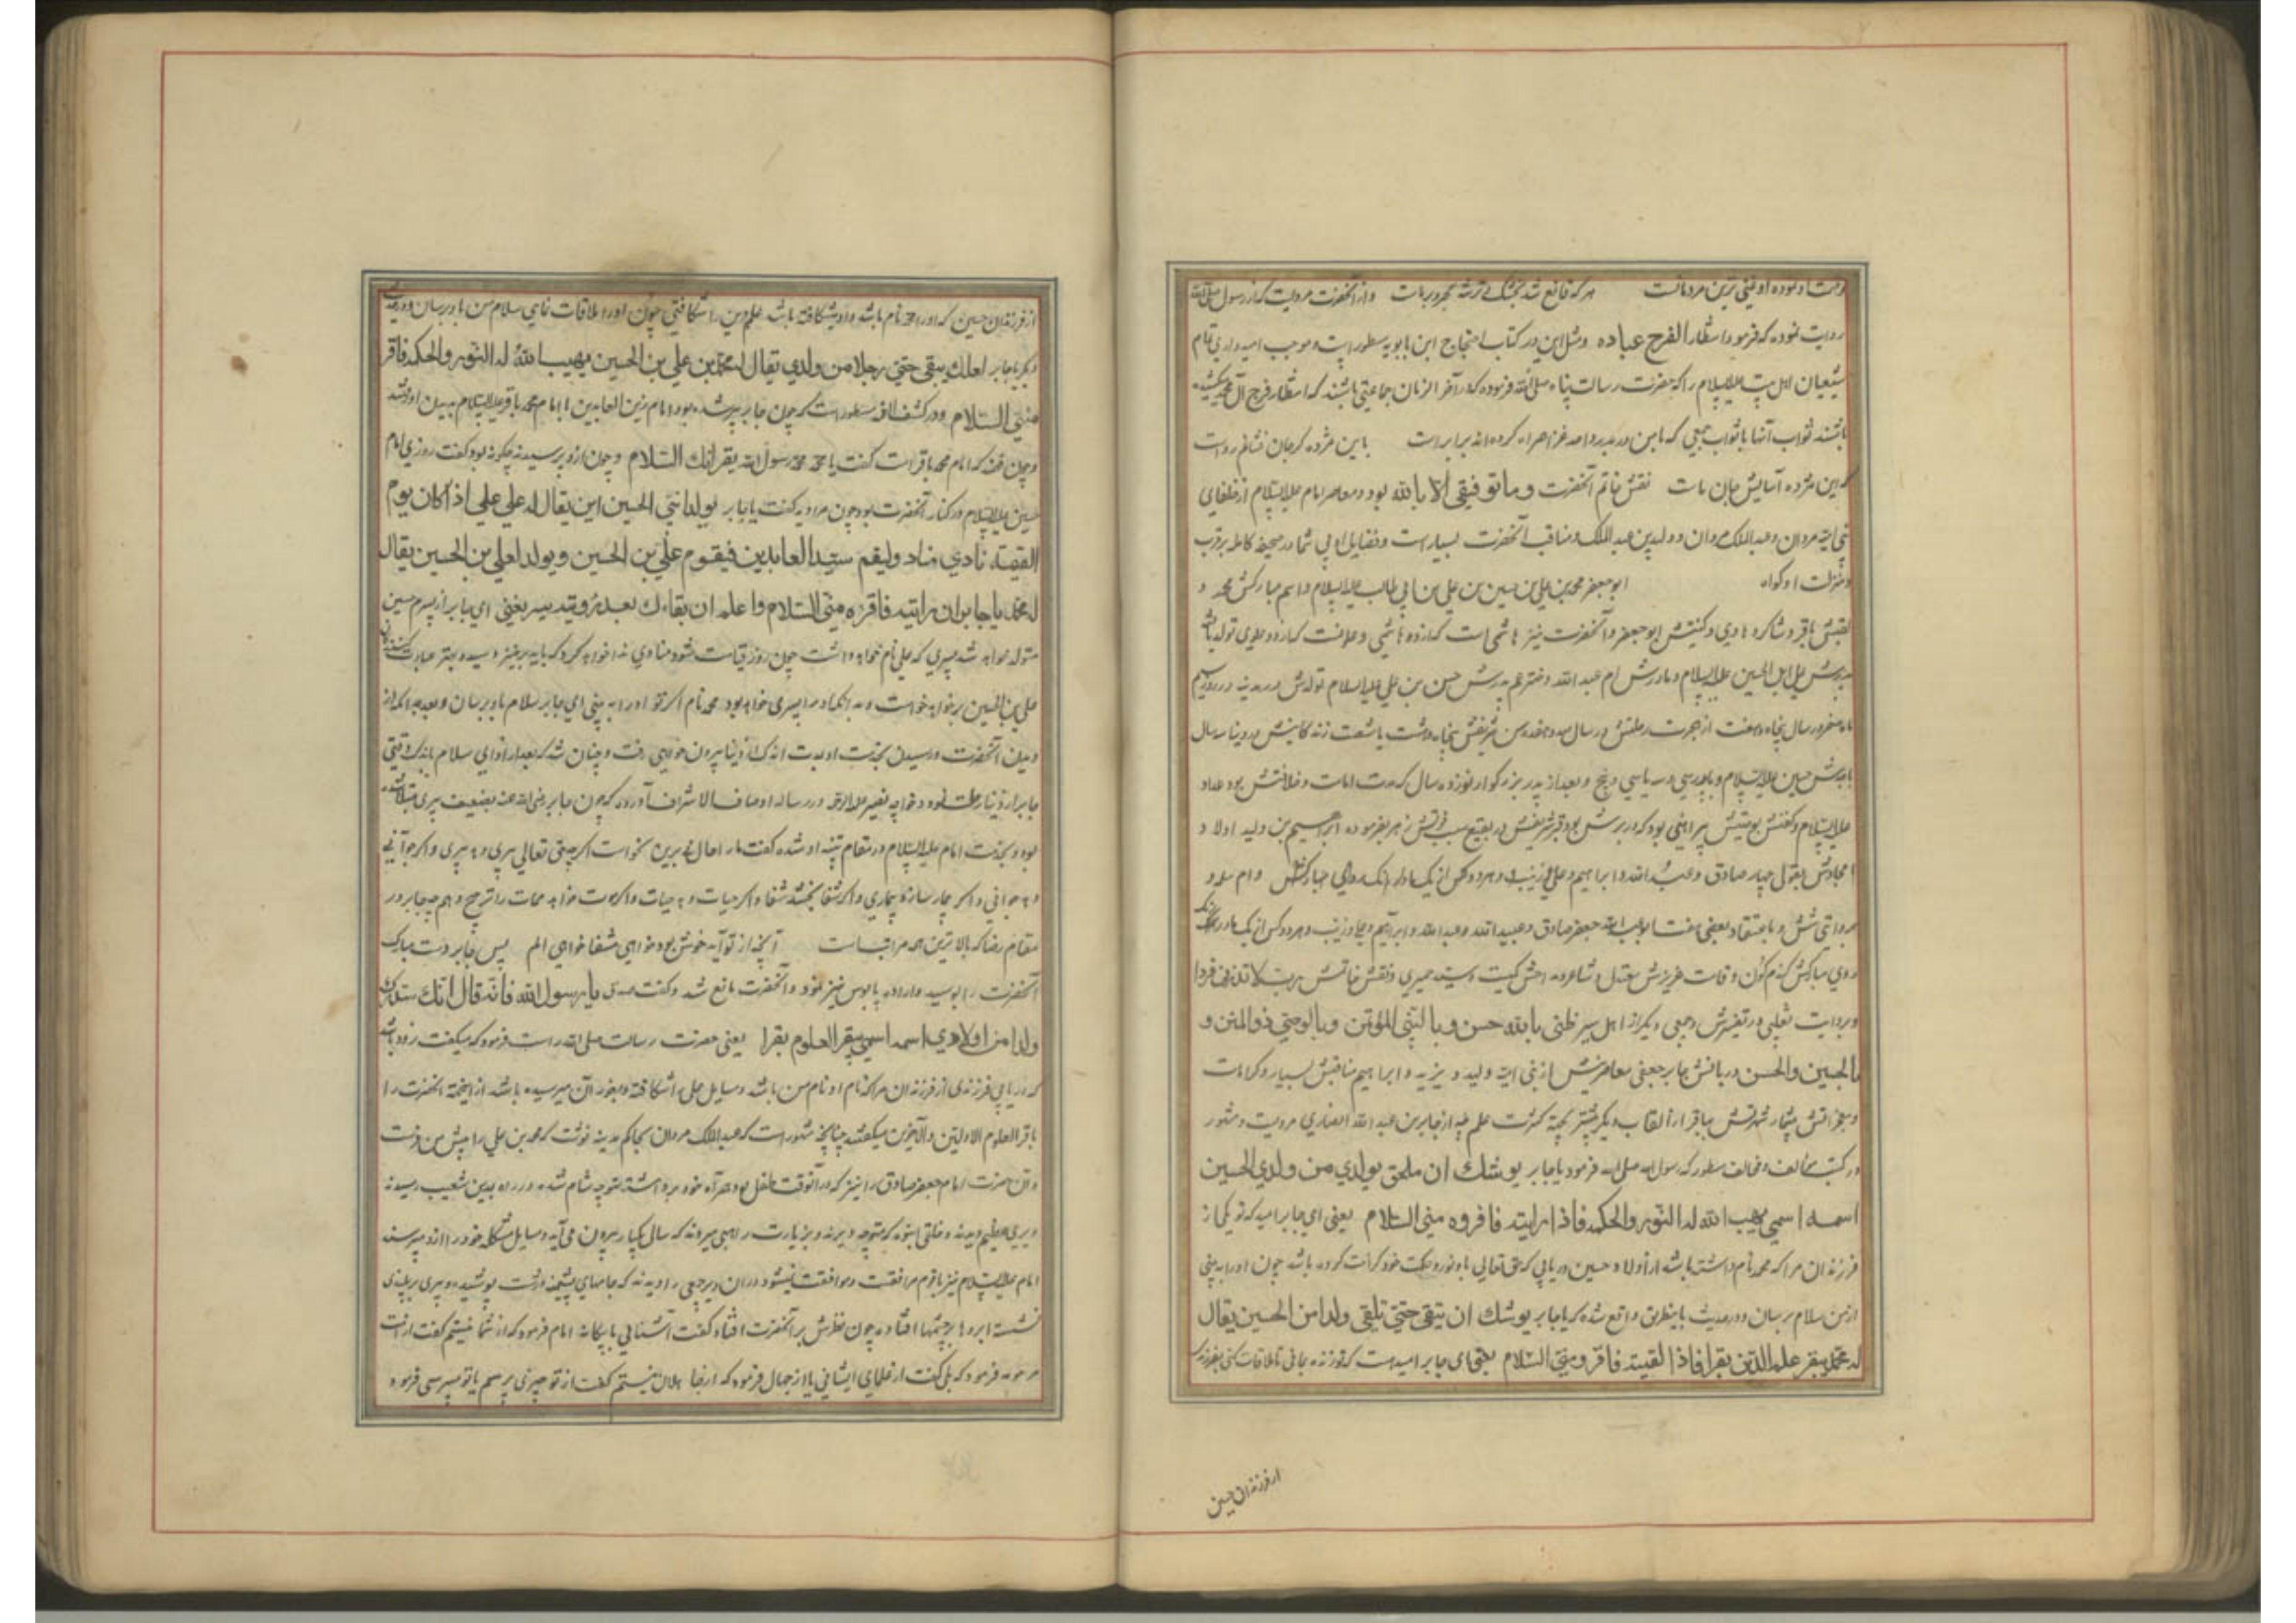 هر که قانع شد بخشک و تر شه بحر و بر است وازانحضرت مرویست که از رسول صلی الله
روایت نموده که فرمود انتظار الفرج عباده ومثل این در کتاب احتجاج ابن بابویه مسطور است وموجب امیدواری تمام
شیعیان اهل بیت علیه السلام را که حضرت رسالت پناه صلی الله فرموده که در آخر الزمان جماعتی باشند که انتظار فرج آل محمد
باشند ثواب آنها با ثواب جمعی که با من در بدر واحد غزا همراه کرده اند برابر است باین مژده کر جان فشانم رواست
که این مژده آسایش جان ماست نقش خاتم آنحضرت وما توفیقی الا بالله بود ومعاصر امام علیه السلام از خلفای
بنی امیه مروان وعبدالملک مروان وولید بن عبدالملک ومناقب آنحضرت بسیار است وفضایل امامی شما در صحیفه کامله بر قرب
ومنزلت او کواه ابو جعفر محمد بن علی بن حسین بن علی بن ابی طالب علیه السلام واسم مبارکش محمد و
لقبش باقر وشاکر وهادی وکنیتش ابو جعفر وآنحضرت نیز هاشمی است که از دو هاشمی وعلویست که از دو علوی تولد یافته
پدرش علی ابن الحسین علیه السلام ومادرش ام عبد الله دختر عم پدرش حسن بن علی علیه السلام تولدش در مدینه در روز سیم
ماه صفر در سال پنجاه وهفت از هجرت رحلتش در سال صد وهفده سن شریفش پنجاه وهشت یا شصت زندکانیش در دنیا سه سال
با جدش حسین علیه السلام وبا پدر سی وسه یا سی وپنج وبعد از پدر بزرکوار نوزده سال که مدت امامت وخلافتش بود
علیه السلام وکفنش بوصیتش پیراهنی بود که در برش بود قبر شریفش در بقیع سبب فوتش زهر بفرموده ابراهیم بن ولید اولاد و
امجادش بقول جعفر صادق وعبد الله وابراهیم وعلی وزینب وهر دو کس از یک مادر وام سلمه و
بروایتی شش وباعتقاد بعضی هفت ابو عبد الله جعفر صادق وعبید الله وعبد الله وابراهیم وعلی وزینب وهر دو کس از یک مادر
روی مبارکش کندم کون وقامت عزیزش معتدل وشاعر مداحش کمیت وسید حمیری ونقش خاتمش رب لا تذرنی فردا
وبروایت ثعلبی در تفسیرش وجمعی دیگر از اهل سیر ظنی بالله حسن وبالنبی المؤتمن وبالوصی ذی المنن و
بالحسین والحسن دربانش جابر جعفی معاصرش از بنی امیه ولید ویزید وابراهیم مناقبش بسیار وکرامات
ومعجزاتش بیشمار شهرتش بباقر از القاب دیکر بیشتر بجهة کثرت علم چه از جابر بن عبد الله انصاری مرویست ومشهور
در کتب مخالف ومؤالف مسطور که رسول الله صلی الله فرمود یا جابر یوشک ان تلحق بولدی من ولدی الحسین
اسمه اسمی یهب الله له النور والحکمه فاذا رایته فاقروه منی السلام یعنی ای جابر امید که تو یکی از
فرزندان مرا که محمد نام داشته باشد از اولاد حسین دریابی که حق تعالی باو نور وحکمت خود کرامت کرده باشد چون او را ببینی
از من سلام برسان ودر حدیث باینطریق واقع شده که یا جابر یوشک ان تبقی حتی تلقی ولدا من الحسین یقال
له محمد یبقر علم الدین بقرا فاذا لقیته فاقره منی السلام یعنی ای جابر امید است که تو زنده مانی تا ملاقات کنی بفرزندی
از فرزندان حسین
از فرزندان حسین که او را محمد نام باشد واو شکافته باشد علم دین را شکافتنی چون او را ملاقات نمایی سلام من باو برسان ودر حدیث
دیکر یا جابر لعلک تبقی حتی رجلا من ولدی یقال له محمد بن علی بن الحسین یهب الله له النور والحکمه فاقر
منی السلام ودر کشف الغمه مسطور است که چون جابر پیر شده بود امام زین العابدین با امام محمد باقر علیه السلام بدیدن او رفتند
وچون گفتند که امام محمد باقر است گفت یا محمد محمد رسول الله یقرانک السلام وچون از و پرسیدند چکونه بود گفت روزی امام
حسین علیه السلام در کنار آنحضرت بود چون مرا دید گفت یا جابر یولد ابنی الحسین ابن یقال له علی علی اذا کان یوم
القیمة نادی مناد ولیقم سید العابدین فیقوم علی بن الحسین ویولد لعلی بن الحسین یقال
له محمد یا جابر ان رایته فاقره منی السلام واعلم ان بقاءک بعد رؤیته یسیر یعنی ای جابر از پسرم حسین
متولد خواهد شد پسری که علی نام خواهد داشت چون روز قیامت شود منادی ندا خواهد کرد که باید برخیزد سید وبهتر عبادت کنندکان
علی بن الحسین بر خواهد خواست وبه او پسری خواهد بود محمد نام اکر تو او را به بینی ای جابر سلام ما باو برسان
دیدن آنحضرت ورسیدن بخدمت او بمدت اندک از دنیا بیرون خواهی رفت وچنان شد که بعد از ادای سلام باندک وقتی
جابر از دنیا رحلت نمود وخواجه نصیر علیه الرحمه در رساله اوصاف الاشراف آورده که چون جابر رضی الله عنه بضعف پیری مبتلا شده
بود وبخدمت امام علیه السلام در مقام شده گفت مرا حال بر این نحو است اکر حق تعالی پیری دهد پیری واکر جوانی
دهد جوانی واکر بیمار سازد بیماری واکر شفا بخشد شفا واکر حیات دهد حیات واکر موت خواهد ممات را ترجیح دهم چه جابر در
مقام رضا که بالاترین همه مراتب است آنچه از تو آید خوش بود خواهی شفا خواهی الم پس جابر دست مبارک
آنحضرت را بوسید واراده پابوس نیز نمود وآنحضرت مانع شد وگفت صدق یا رسول الله فانه قال انک ستدرک
ولدا من اولادی اسمه اسمی یبقر العلوم بقرا یعنی حضرت رسالت صلی الله راست فرمود که میگفت زود باشد
که دریابی فرزندی از فرزندان مرا که نام او نام من باشد ومسایل علمی را شکافته وبغور آن میرسیده باشد از اینجهة آنحضرت را
باقر العلوم الاولین والآخرین میگفتند چنانچه مشهور است که عبدالملک مروان بحاکم مدینه نوشت که محمد بن علی را پیش من فرست
وآن حضرت امام جعفر صادق را نیز که در آنوقت طفل بود همراه خود برداشته متوجه شام شده ودر راه بمدین شعیب رسیدند
ودیری عظیم دیدند وخلقی انبوه که متوجه دیرند وبزیارت راهبی میروند که سالی یکبار بیرون می آید ومسایل مشکله خود را از و میپرسند
امام علیه السلام نیز با قوم مرافقت وموافقت نمود ودران دیر جمعی را دیدند که جامهای پشمینه درشت پوشیده وپیری بر بلندی
نشسته ابروها بر چشمها افتاده چون نظرش بر آنحضرت افتاد گفت آشنایی یا بیکانه امام فرمود که از شما نیستم گفت از امت
مرحومه فرمود که بلی گفت از علمای ایشانی یا از جهال فرمود که از جهال نیستم گفت از تو چیزی بپرسم یا تو میپرسی فرمود